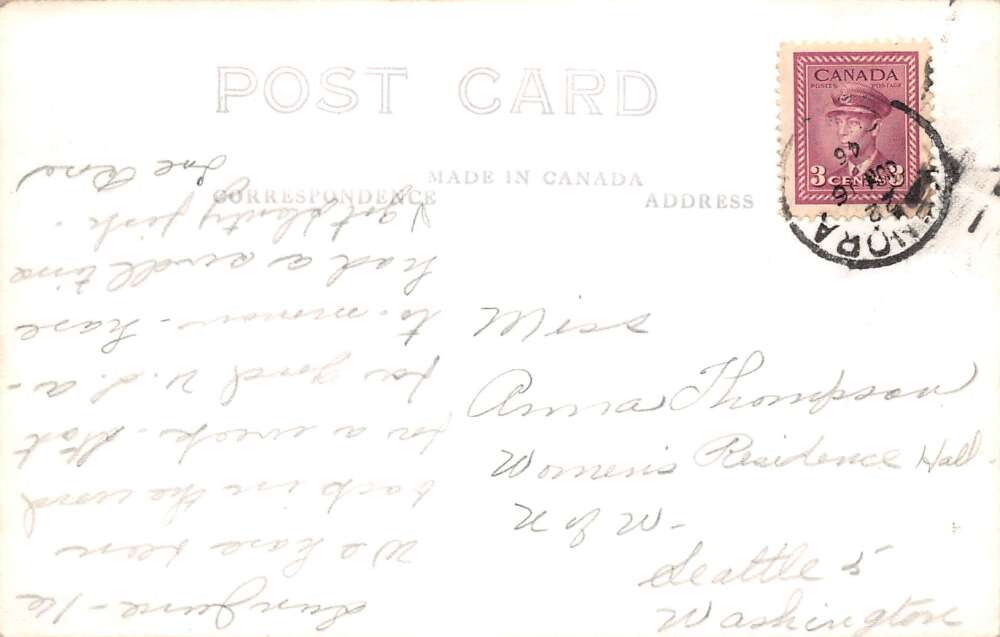 POST CARD
CANADA
POSTES POSTAGE
3 CENTS 3
KENORA
46
MADE IN CANADA
CORRESPONDENCE
ADDRESS
Miss
Anna Thompson
Women's Residence Hall
U of W-
Seattle 5
Washington
Sun June - 16
We have been
back in the woods
for a week. Start
for good U.S.A-
to-morrow - have
had a swell time
& got plenty fish.